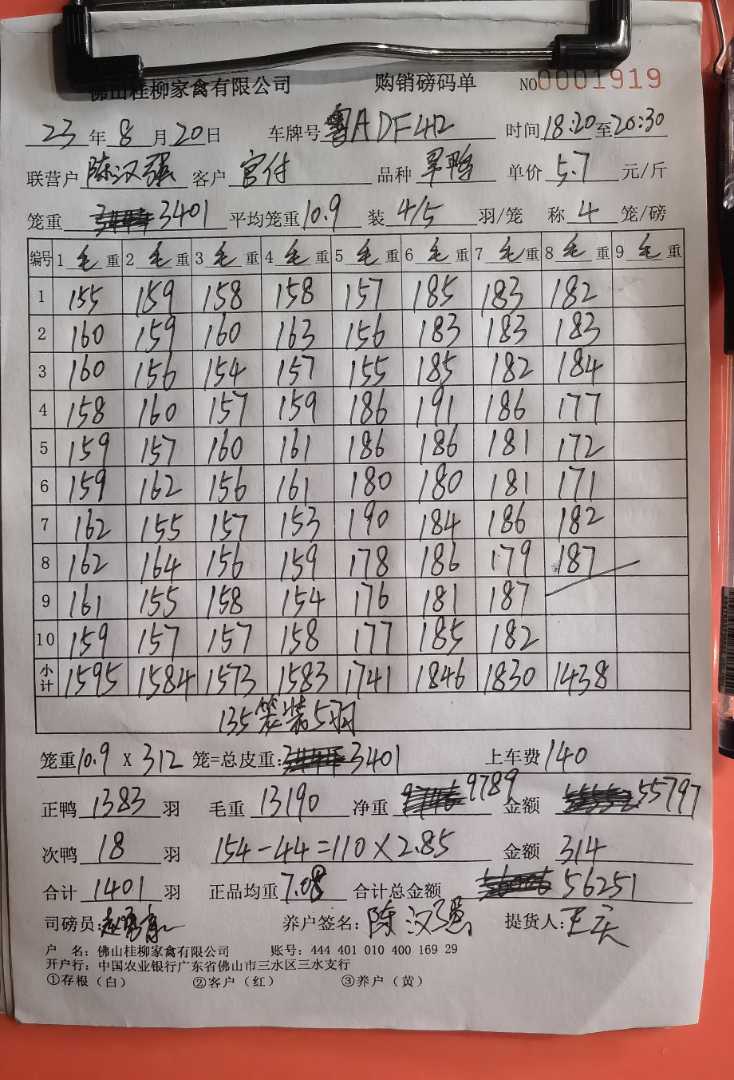 佛山桂柳家禽有限公司 购销磅码单 NO0001919
23年8月20日 车牌号 粤ADF412 时间18:20至20:30
联营户 陈汉强 客户 宫付 品种 旱鸭 单价 5.7 元/斤
笼重 3401 平均笼重10.9 装 4/5 羽/笼 称 4 笼/磅
编号 1毛重 2毛重 3毛重 4毛重 5毛重 6毛重 7毛重 8毛重 9毛重
1 155 159 158 158 157 185 183 182
2 160 159 160 163 156 183 183 183
3 160 156 154 157 155 185 182 184
4 158 160 157 159 186 191 186 177
5 159 157 160 161 186 186 181 172
6 159 162 156 161 180 180 181 171
7 162 155 157 153 190 184 186 182
8 162 164 156 159 178 186 179 187
9 161 155 158 154 176 181 187
10 159 157 157 158 177 185 182
小计 1595 1584 1573 1583 1741 1846 1830 1438
135笼装5羽
笼重10.9 X 312 笼=总皮重: 3401 上车费 140
正鸭 1383 羽 毛重 13190 净重 9789 金额 55797
次鸭 18 羽 154-44=110×2.85 金额 314
合计 1401 羽 正品均重 7.08 合计总金额 56251
司磅员: 养户签名: 陈汉强 提货人:
户 名: 佛山桂柳家禽有限公司 账号: 444 401 010 400 169 29
开户行: 中国农业银行广东省佛山市三水区三水支行
①存根（白） ②客户（红） ③养户（黄）